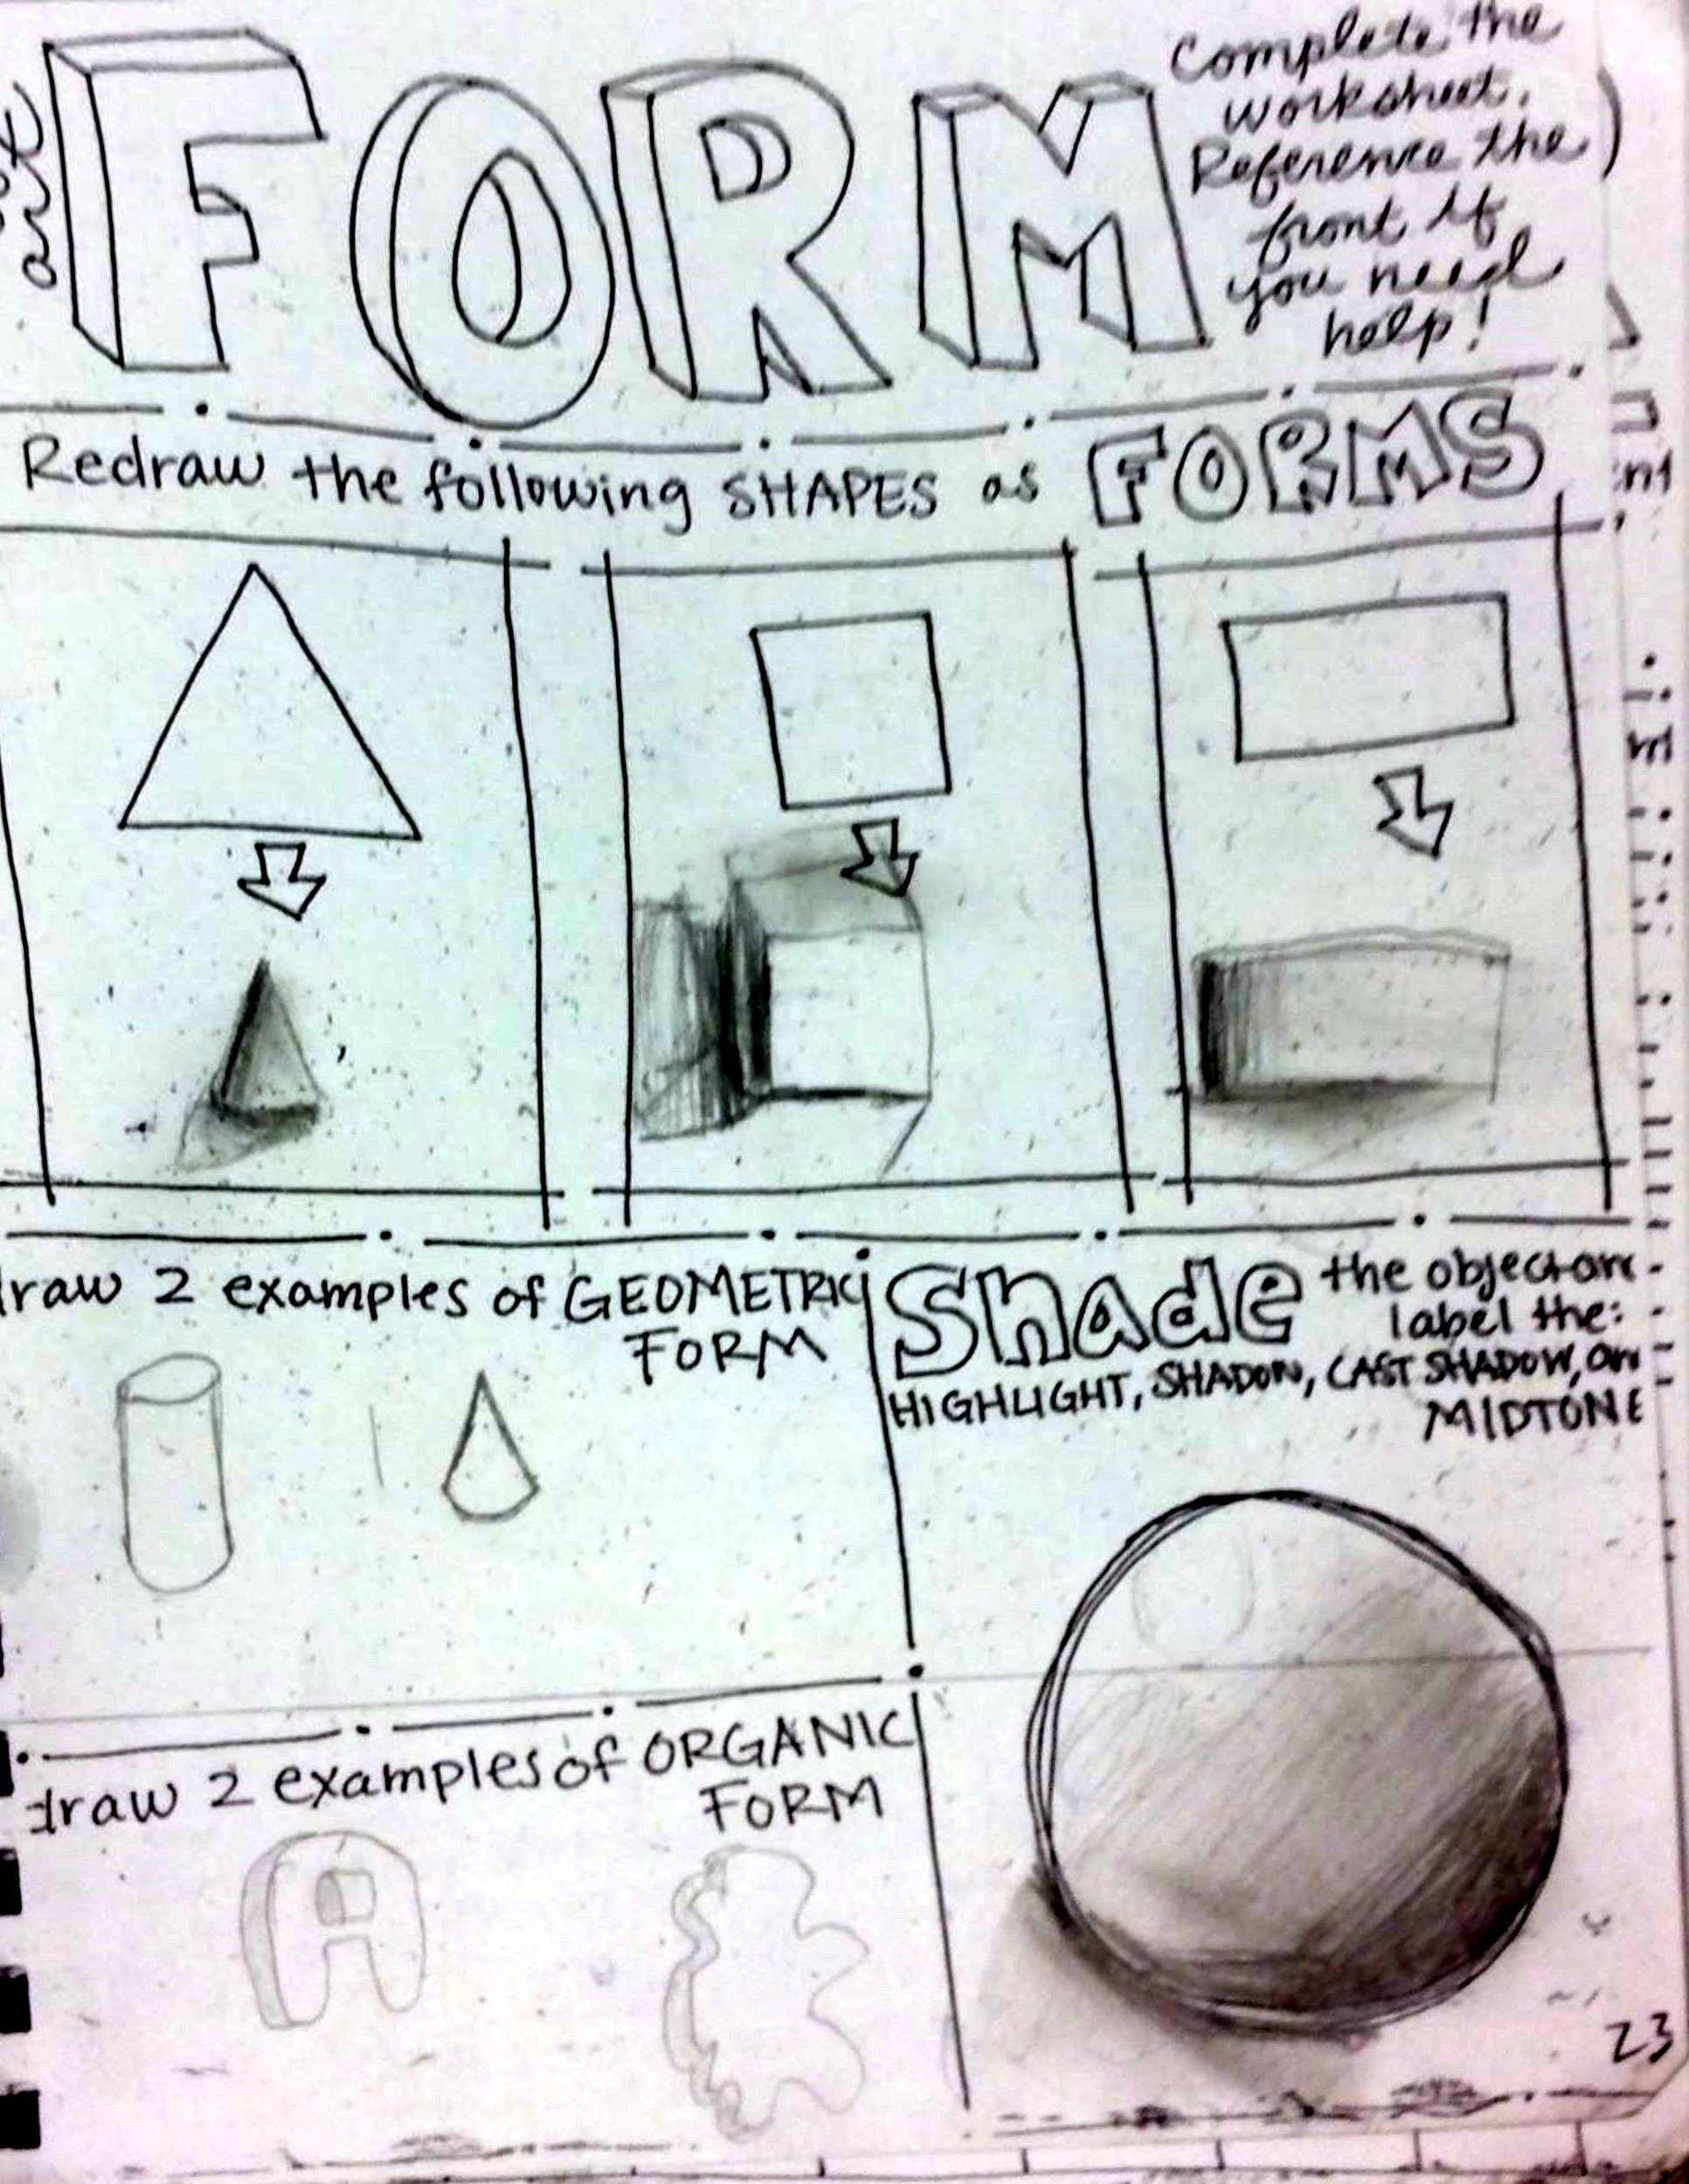 art
FORM
Complete the
worksheet.
Reference the
front if
you need
help!
Redraw the following SHAPES as FORMS
raw 2 examples of GEOMETRIC
FORM
Shade the object an
label the:
HIGHLIGHT, SHADOW, CAST SHADOW, an
MIDTONE
draw 2 examples of ORGANIC
FORM
A
23